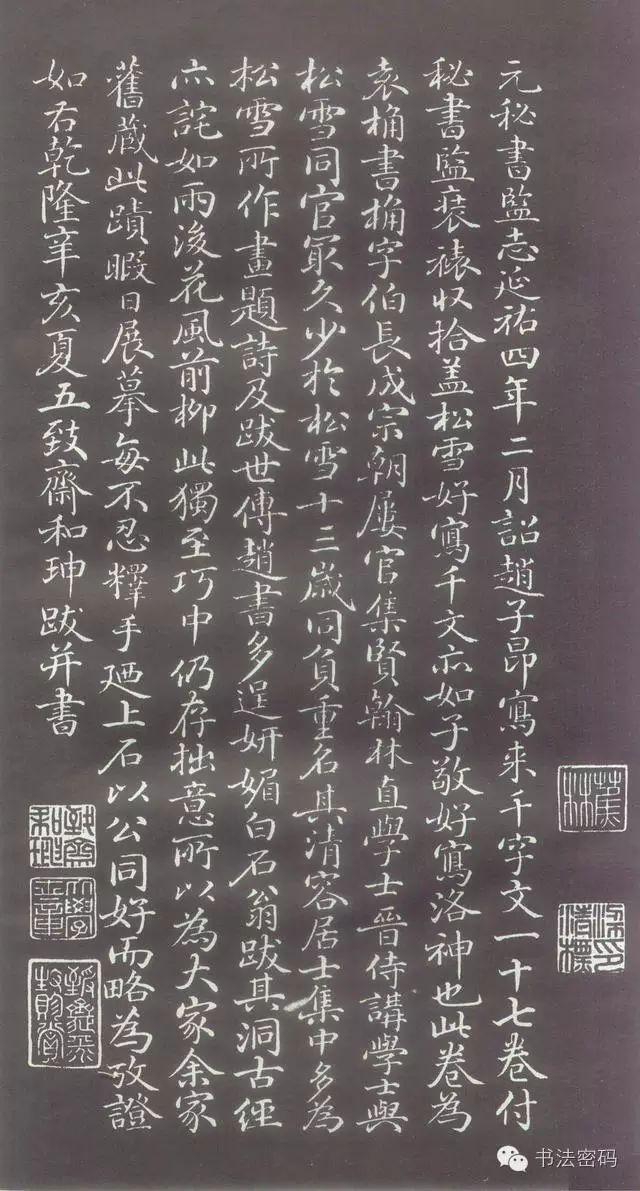 元秘書監志延祐四年二月詔趙子昂寫来千字文一十七卷付
秘書監裒裱収拾盖松雪好寫千文亦如子敬好寫洛神也此卷為
袁桷書桷字伯長成宗朝屢官集賢翰林直學士晉侍講學士與
松雪同官冣久少於松雪十三歲同負重名其清容居士集中多為
松雪所作畫題詩及跋世傳趙書多逞妍媚白石翁跋其洞古經
亦詫如雨後花風前柳此獨至巧中仍存拙意所以為大家余家
舊蔵此蹟暇日展摹每不忍釋手廼上石以公同好而略為攷證
如右乾隆辛亥夏五致齋和珅跋并書
蕉林
致齋和珅
大學士章
书法密码